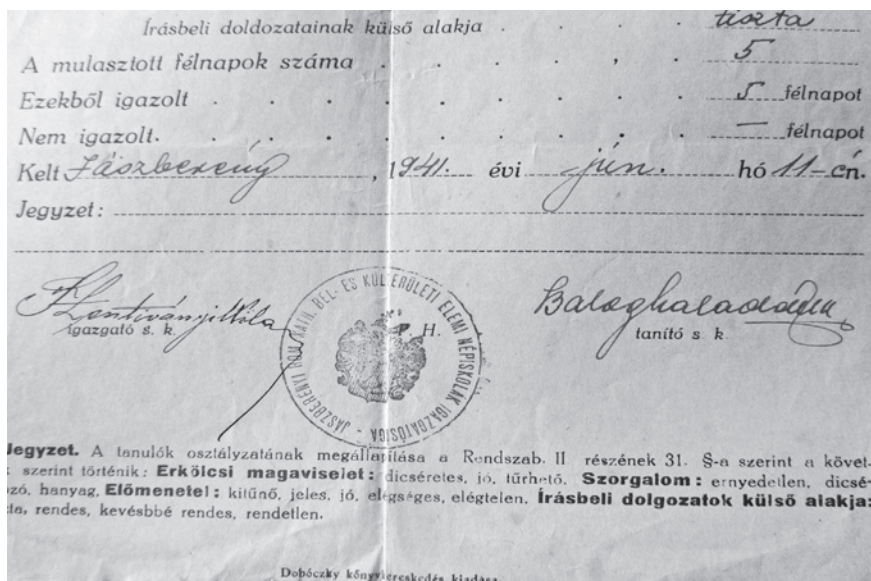 Írásbeli doldozatainak külső alakja . . . tiszta
A mulasztott félnapok száma . . . . , . 5
Ezekből igazolt . . . . . . . . 5 félnapot
Nem igazolt. . . . . . . . . — félnapot
Kelt Jászberény, 1941. évi jún. hó 11-én.
Jegyzet:
igazgató s. k.
P. H.
JÁSZBERÉNYI ROM. KATH. BEL- ÉS KÜLTERÜLETI ELEMI NÉPISKOLÁK IGAZGATÓSÁGA -
tanító s k
Jegyzet. A tanulók osztályzatának megállapítása a Rendszab. II részének 31. §-a szerint a követ-
k szerint történik: Erkölcsi magaviselet: dicséretes, jó, tűrhető. Szorgalom: ernyedetlen, dicsé-
ozó, hanyag. Előmenetel: kitűnő, jeles, jó, elégséges, elégtelen. Írásbeli dolgozatok külső alakja:
ta, rendes, kevésbbé rendes, rendetlen.
Dobóczky könyvkereskedés kiadása